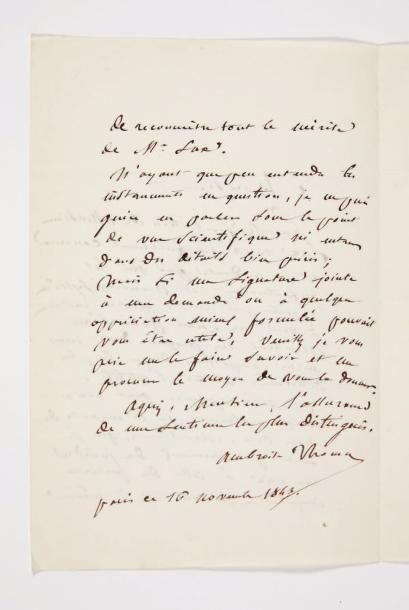 de reconnaître tout le mérite
de Mr. Sax.
N'ayant que peu entendu les
instruments en question, je ne puis
guère en parler sous le point
de vue scientifique ni entrer
dans des détails bien précis;
Mais si ma signature jointe
à une demande ou à quelque
appréciation mieux formulée pouvait
vous être utile, veuillez je vous
prie me le faire savoir et me
procurer le moyen de vous la donner.
Agréez, Monsieur, l'assurance
de mes sentimens les plus distingués.
Ambroise Thomas
paris ce 16 novembre